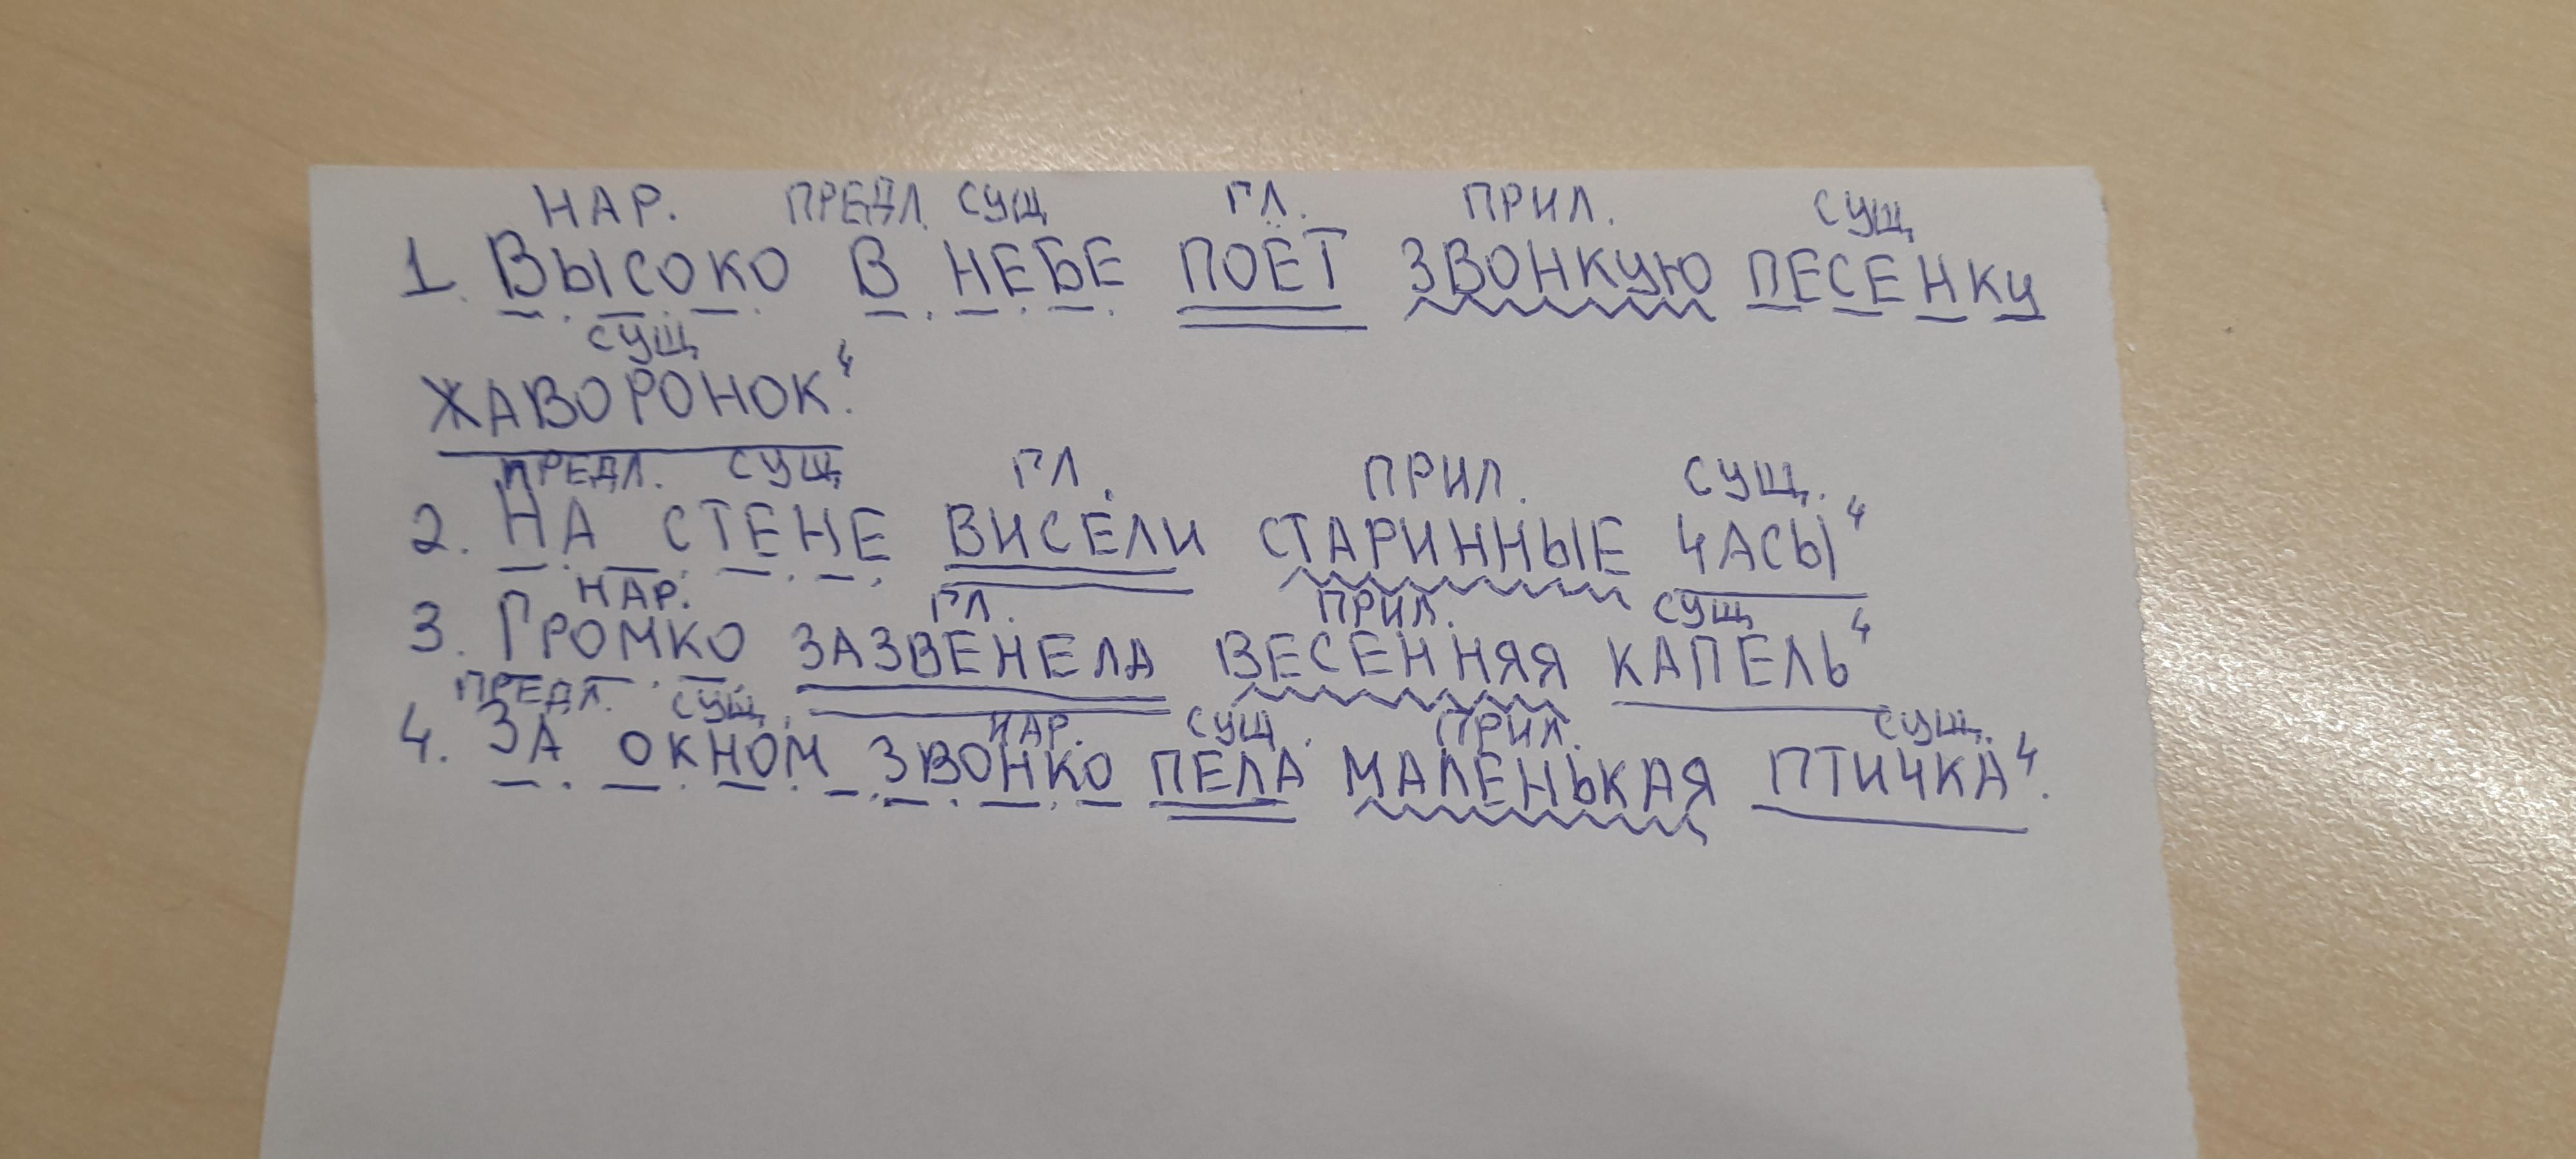 НАР. ПРЕДЛ. СУЩ ГЛ. ПРИЛ. СУЩ
1. ВЫСОКО В НЕБЕ ПОЁТ ЗВОНКУЮ ПЕСЕНКУ
СУЩ
ЖАВОРОНОК⁴.
ПРЕДЛ. СУЩ ГЛ. ПРИЛ. СУЩ.
2. НА СТЕНЕ ВИСЕЛИ СТАРИННЫЕ ЧАСЫ⁴
НАР. ГЛ. ПРИЛ. СУЩ
3. ГРОМКО ЗАЗВЕНЕЛА ВЕСЕННЯЯ КАПЕЛЬ⁴
ПРЕДЛ. СУЩ. НАР. СУЩ. ПРИЛ. СУЩ.
4. ЗА ОКНОМ ЗВОНКО ПЕЛА МАЛЕНЬКАЯ ПТИЧКА⁴.